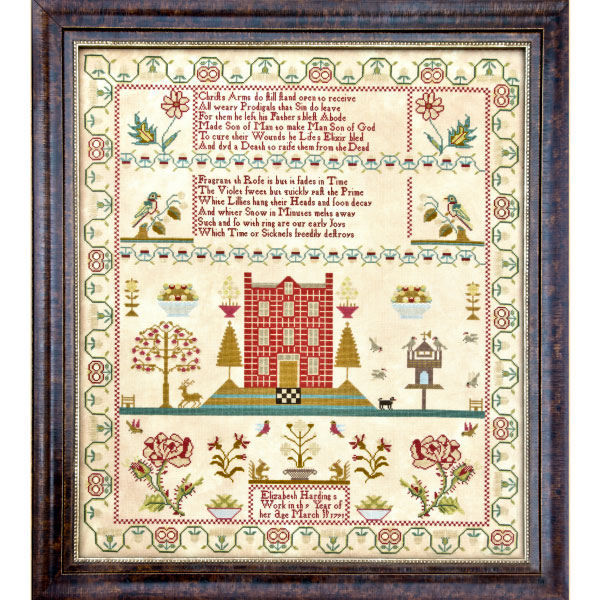 Chrifts Arms do ftill ftand open to receive
All weary Prodigals that Sin do leave
For them he left his Father s bleft Abode
Made Son of Man to make Man Son of God
To cure their Wounds he Life s Elixir bled
And dyd a Death to raife them from the Dead
Fragrant th Rofe is but it fades in Time
The Violet fweet but quickly paft the Prime
White Lillies hang their Heads and foon decay
And whiter Snow in Minutes melts away
Such and fo with ring are our early Joys
Which Time or Sicknefs fpeedily deftroys
Elizabeth Harding s
Work in th 9 Year of
her age March 1791